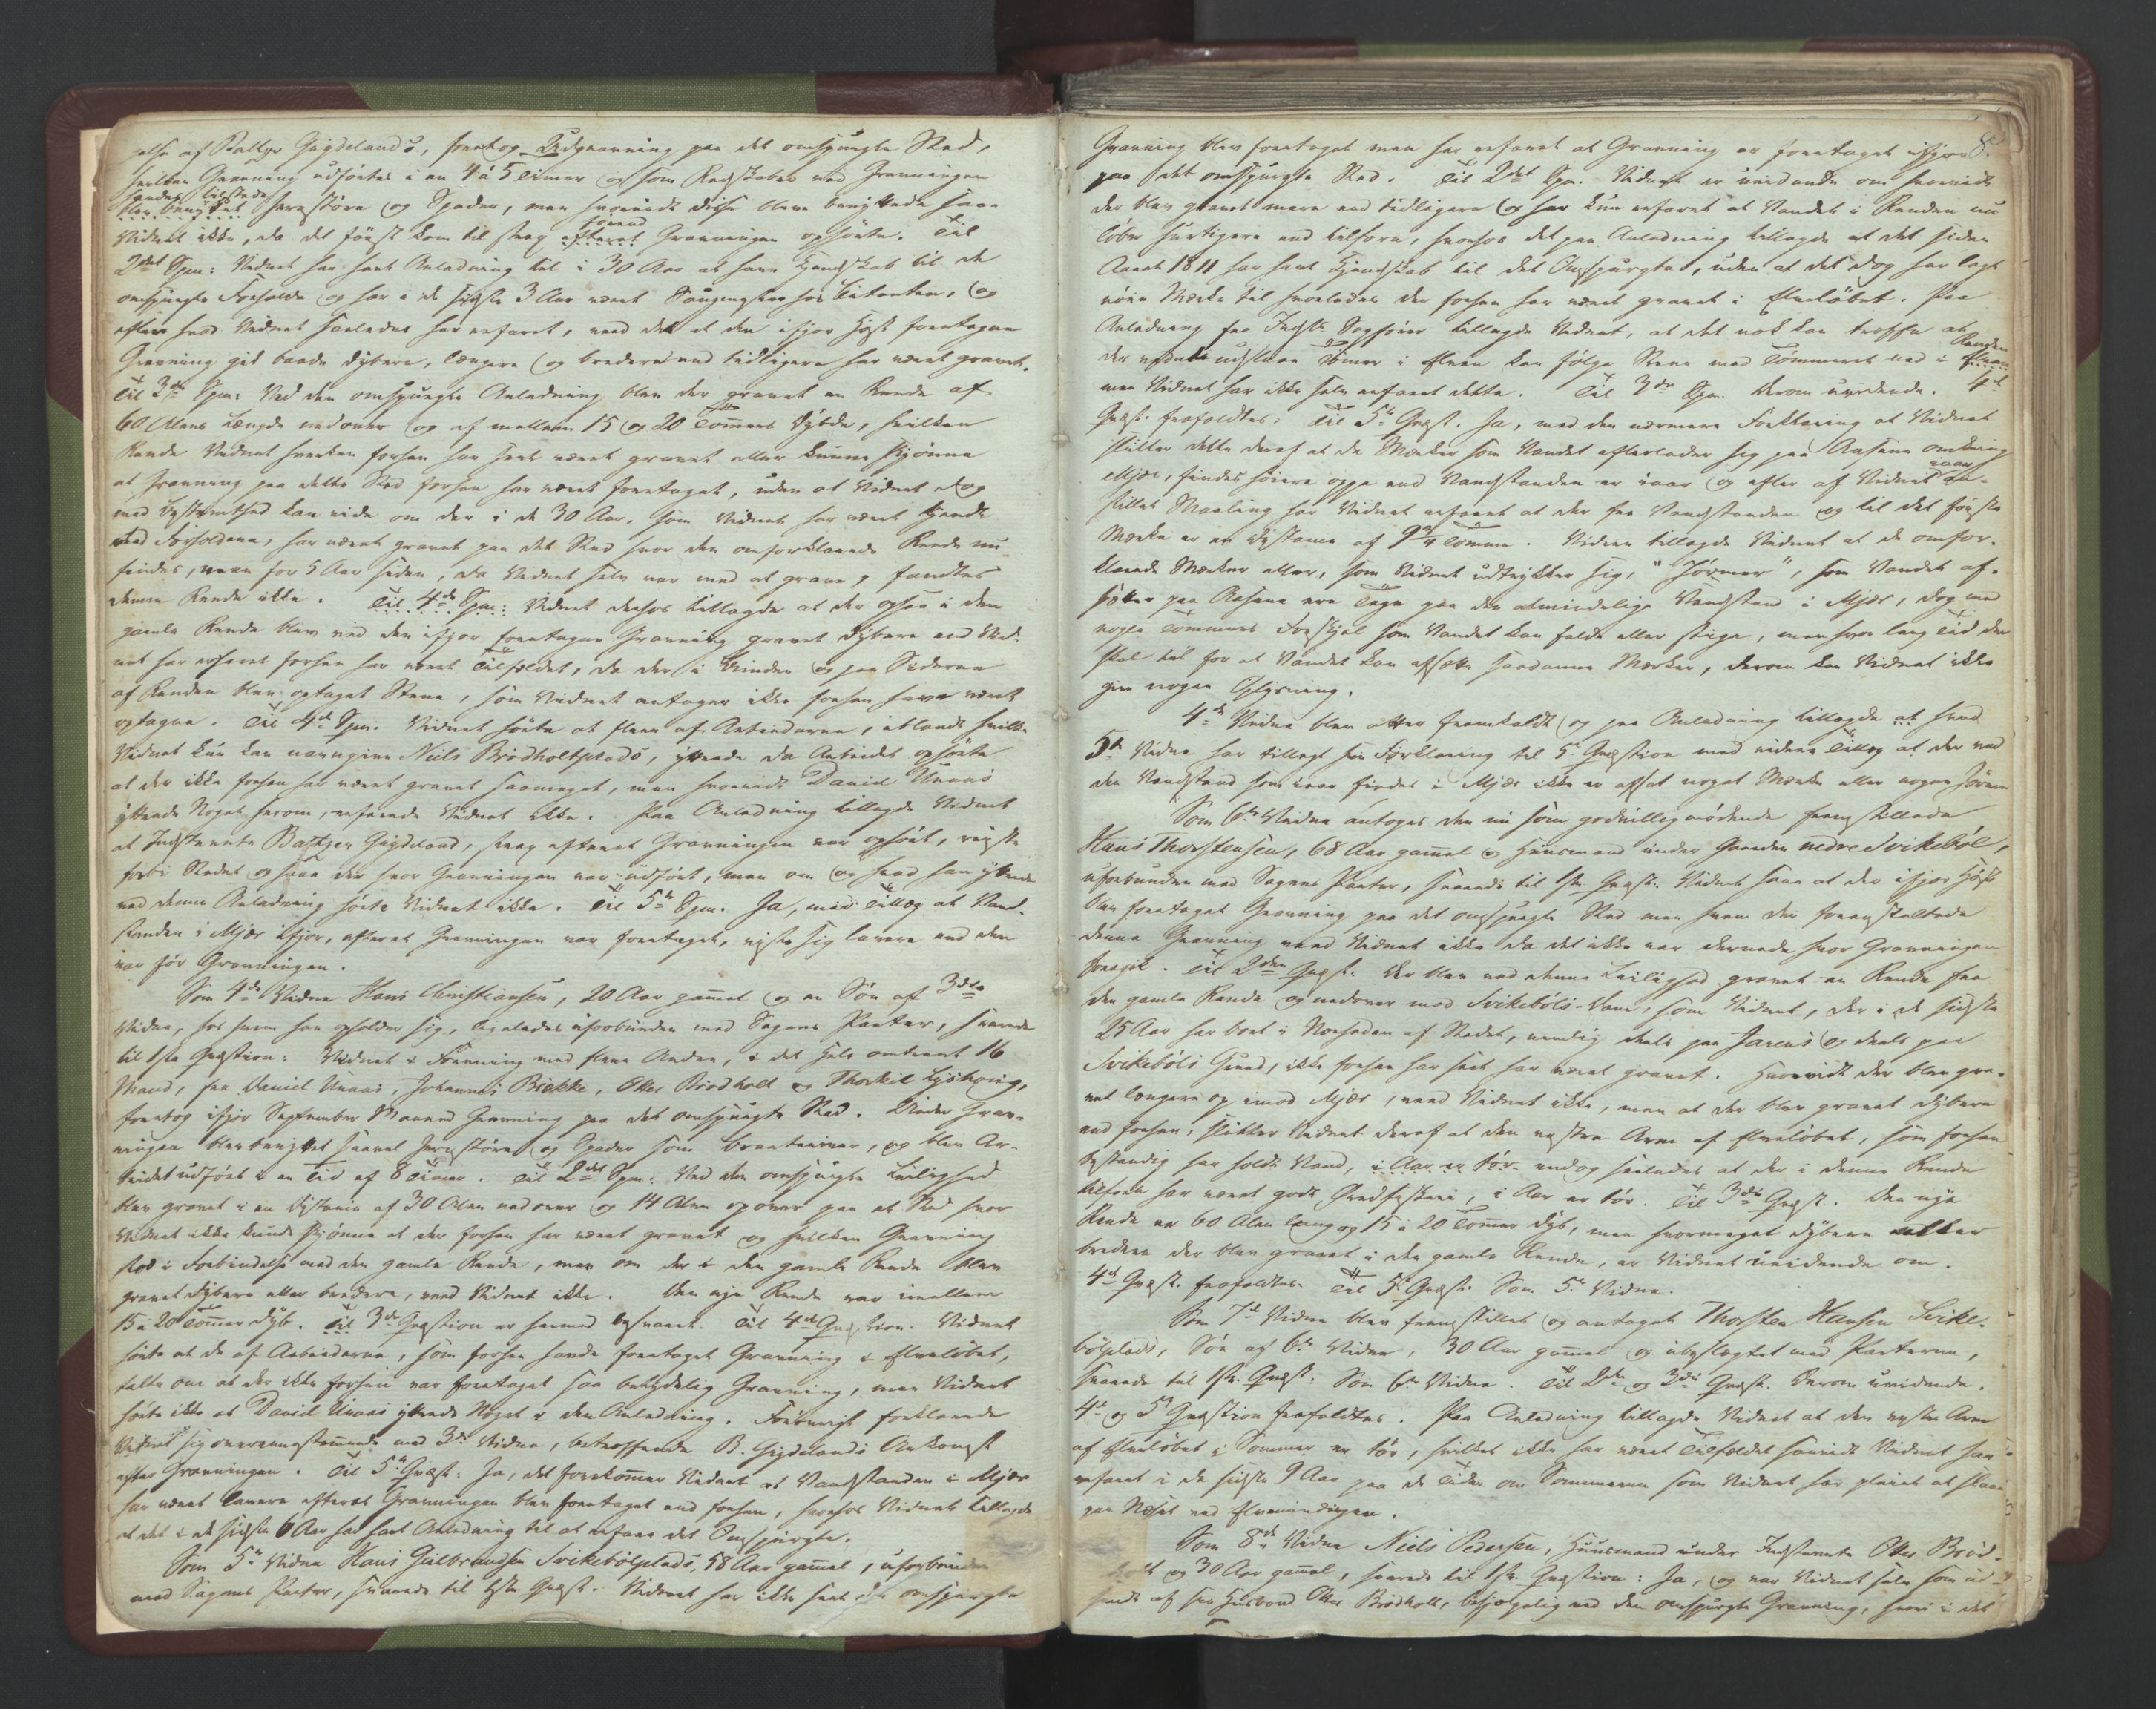 else af Baltzer Gigdelands, foretog Udgravning paa det omspurgte Sted,
hvilken Gravning udførtes i en 4 à 5 Timer og som Redskaber ved Gravningen
blev benyttet Jernstøre og Spader, men hvorvidt disse bleve benyttede saae
Vidnet ikke, da det først kom til strax efterat Gravningen ophørte. Til
2det Spm: Vidnet har havt Anledning til i 30 Aar at have Kjendskab til de
omspurgte Forholde og har i de sidste 3 Aar været hos Citanten, og
efter hvad Vidnet saaledes har erfaret, veed det at den ifjor Høst foretagne
Gravning gik baade dybere, længere og bredere end tidligere har været gravet.
Til 3die Spm: Ved den omspurgte Anledning blev der gravet en Rende af
60 Alens Længde nedover og af mellem 15 og 20 Tommers Dybde, hvilken
Rende Vidnet hverken forhen har seet været gravet eller kunne skjønne
at Gravning paa dette Sted forhen har været foretaget, uden at Vidnet dog
med Bestemthed kan vide om der i de 30 Aar, som Vidnet har været kjendt
med Forholdene, har været gravet paa det Sted hvor den omforklarede Rende nu
findes, men for 5 Aar siden, da Vidnet selv var med at grave, fandtes
denne Rende ikke. Til 4de Spm: Vidnet derhos tillagde at der ogsaa i den
gamle Rende blev ved den ifjor foretagne Gravning gravet dybere end Vid-
net har erfaret forhen har været Tilfældet, da der i Bunden og paa Siderne
af Renden blev optaget Stene, som Vidnet antager ikke forhen have været
optagne. Til 4de Spm. Vidnet hørte at flere af Arbeiderne, iblandt hvilke
Vidnet kun kan navngive Niels Brødholtplads, yttrede da Arbeidet ophørte
at der ikke forhen har været gravet saameget, men hvorvidt Daniel Unaas
yttrede Noget herom, erfarede Vidnet ikke. Paa Anledning tillagde Vidnet
at Indstevnte Baltzer Gigdeland, strax efterat Gravningen var ophørt, reiste
forbi Stedet og saae der hvor Gravningen var udført, men om og hvad han yttrede
ved denne Anledning hørte Vidnet ikke. Til 5te Spm. Ja, med Tillæg at Vand-
standen i Mjær ifjor, efterat Gravningen var foretaget, viste sig lavere end den
var før Gravningen.
Som 4de Vidne Hans Christiansen, 20 Aar gammel og en Søn af 3die
Vidne, hos hvem han opholder sig, ligeledes uforbunden med Sagens Parter, svarede
til 1ste Qvæstion: Vidnet i Forening med flere Andre, i det Hele omtrent 16
Mand, fra Daniel Unaas, Johannes Brække, Ole Brødholt og Thorkil Lyshoug,
foretog ifjor September Maaned Gravning paa det omspurgte Sted. Under Grav-
ningen blev benyttet saavel Jernstøre og Spader som, og blev Ar-
beidet udført i en Tid af 8 Timer. Til 2det Spm: Ved den omspurgte Leilighed
blev gravet i en Distance af 30 Alen nedover og 14 Alen opover paa et Sted hvor
Vidnet ikke kunde skjønne at der forhen har været gravet og hvilken Gravning
stod i Forbindelse med den gamle Rende, men om der i den gamle Rende blev
gravet dybere eller bredere, veed Vidnet ikke. Den nye Rende var imellem
15 à 20 Tommer dyb. Til 3die Qvæstion er hermed besvaret. Til 4de Qvæstion. Vidnet
hørte at de af Arbeiderne, som forhen havde foretaget Gravning i Elveløbet,
talte om at der ikke forhen var foretaget saa betydelig Gravning, men Vidnet
hørte ikke at Daniel Unaas yttrede Noget i den Anledning. Forøvrigt forklarede
Vidnet sig overeensstemmende med 3die Vidne, betræffende B. Gigdelands Ankomst
efter Gravningen. Til 5te Qvæst: Ja, det forekommer Vidnet at Vandstanden i Mjær
har været lavere efterat Gravningen blev foretaget end forhen, hvorhos Vidnet tillagde
at det i de sidste 6 Aar har havt Anledning til at erfare det Omspurgte.
Som 5te Vidne Hans Gulbrandsen Svikebølplads, 58 Aar gammel, uforbunden
med Sagens Parter, svarede til 1ste Qvæst. Vidnet har ikke seet den omspurgte
8
Gravning blev foretaget men har erfaret at Gravning er foretaget ifjor
paa det omspurgte Sted. Til 2det Spm. Vidnet er uvidende om hvorvidt
der blev gravet mere end tidligere og har kun erfaret at Vandet i Renden nu
løber hurtigere end tilforn, hvorhos det paa Anledning tillagde at det siden
Aaret 1811 har havt Kjendskab til det Omspurgte, uden at det dog har lagt
nøie Mærke til hvorledes der forhen har været gravet i Elveløbet. Paa
Anledning fra Indst. Sagfører tillagde Vidnet, at det nok kan træffe at
der udslaae Tømmer i Elven kan følge Stene med Tømmeret ned i Renden
men Vidnet har ikke selv erfaret dette. Til 3die Spm. derom uvidende. 4de
Qvæst. frafaldtes. Til 5te Qvæst. Ja, med den nærmere Forklaring at Vidnet
slutter dette deraf at de Mærker som Vandet efterlader sig paa Aasene omkring
Mjær, findes høiere oppe end Vandstanden er iaar og efter af Vidnet iaar an-
stillet Maaling har Vidnet erfaret at der fra Vandstanden og til det første
Mærke er en Distance af 9¼ Tomme. Videre tillagde Vidnet at de omfor-
klarede Mærker eller, som Vidnet udtrykker sig, "Jørmer", som Vandet af-
sætter paa Aasene ere Tegn paa den almindelige Vandstand i Mjær, dog med
nogle Tommers Forskjel som Vandet kan falde eller stige, men hvor lang Tid der
skal til for at Vandet kan afsætte saadanne Mærker, derom kan Vidnet ikke
give nogen Oplysning.
4de Vidne blev atter fremkaldt og paa Anledning tillagde at hvad
5te Vidne har tillagt sin Forklaring til 5te Qvæstion med videre Tillæg at der ved
den Vandstand som iaar findes i Mjær ikke er afsat noget Mærke eller nogen Jørme
Som 6te Vidne antoges den nu som godvillig mødende fremstillede
Hans Thorstensen, 68 Aar gammel og Huusmand under Gaarden nedre Svikebøl,
uforbunden med Sagens Parter, svarede til 1ste Qvæst: Vidnet saae at der ifjor Høst
blev foretaget Gravning paa det omspurgte Sted men hvem der foranstaltede
denne Gravning veed Vidnet ikke da det ikke var dernede hvor Gravningen
foregik. Til 2den Qvæst: Der blev ved denne Leilighed gravet en Rende fra
den gamle Rende og nedover mod Svikebøls-Vaen, som Vidnet, der i de sidste
25 Aar har boet i Nærheden af Stedet, nemlig deels paa Jarens og deels paa
Svikebøls Grund, ikke forhen har seet har været gravet. Hvorvidt der blev gra-
vet længere op imod Mjær, veed Vidnet ikke, men at der blev gravet dybere
end forhen, slutter Vidnet deraf at den vestre Arm af Elveløbet, som forhen
bestandig har holdt Vand, i Aar er tør og saaledes at der i denne Rende
tilforn har været godt Ørredfiskeri, i Aar er tør. Til 3die Qvæst. Den nye
Rende er 60 Alen lang og 15 à 20 Tommer dyb, men hvormeget dybere eller
bredere der blev gravet i den gamle Rende, er Vidnet uvidende om.
4de Qvæst. frafaldtes. Til 5te Qvæst. Som 5te Vidne.
Som 7de Vidne blev fremstillet og antaget Thorsten Hansen Svike-
bølplads, Søn af 6te Vidne, 30 Aar gammel og ubeslægtet med Parterne,
svarede til 1ste Qvæst: Som 6te Vidne. Til 2den og 3die Qvæst. Derom uvidende.
4de og 5te Qvæstion frafaldtes. Paa Anledning tillagde Vidnet at den vestre Arm
af Elveløbet i Sommer er tør, hvilket ikke har været Tilfældet saavidt Vidnet har
erfaret i de sidste 9 Aar paa de Tider om Sommeren som Vidnet har pleiet at slaae
paa Næset ved Elvemundingen.
Som 8de Vidne Niels Pedersen, Huusmand under Indstevnte Ole Brød-
holt og 30 Aar gammel, svarede til 1ste Qvæstion: Ja, og var Vidnet selv som ud-
sendt af sin Husbond Ole Brødholt, behjælpelig ved den omspurgte Gravning, hvori i det